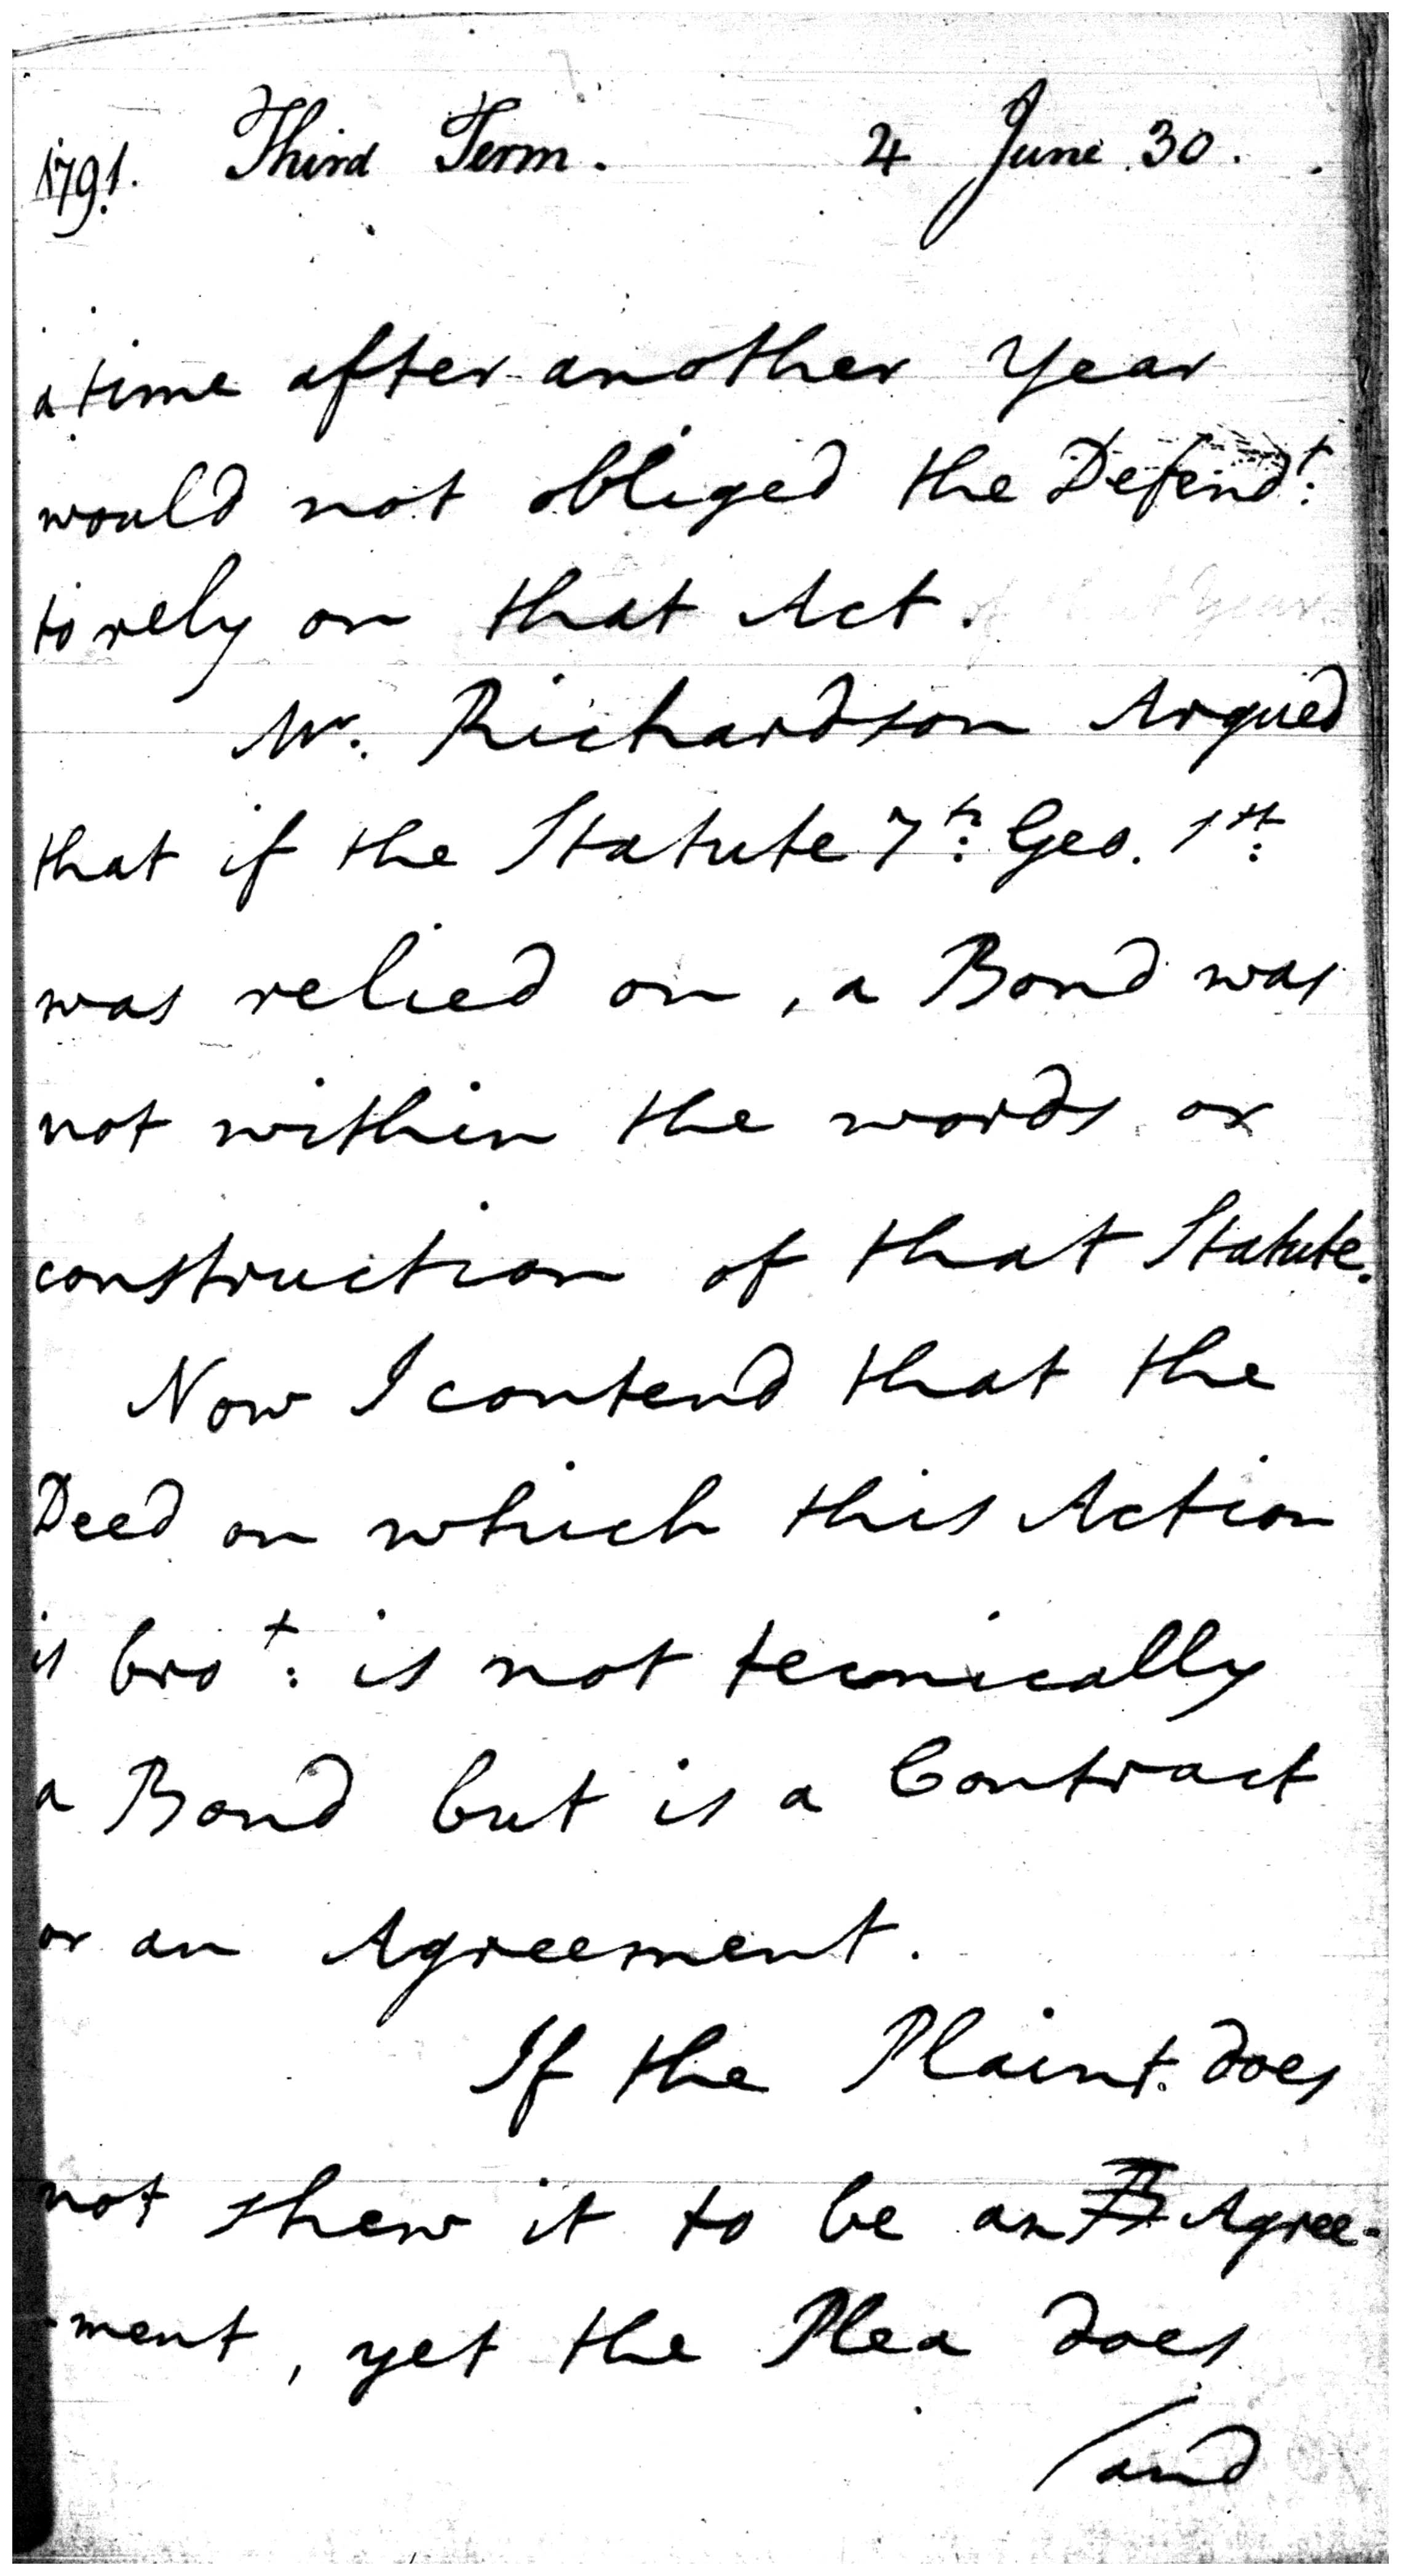 1791. Third Term. 4 June 30.
a time after another Year
would not obliged the Defendt:
to rely on that Act.
Mr. Richardson Argued
that if the Statute 7th: Geo. 1st:
was relied on, a Bond was
not within the words or
construction of that Statute.
Now I contend that the
Deed on which this Action
is brot: is not tecnically
a Bond but is a Contract
or an Agreement.
If the Plaint. does
not shew it to be an B Agree-
-ment, yet the Plea does
/and